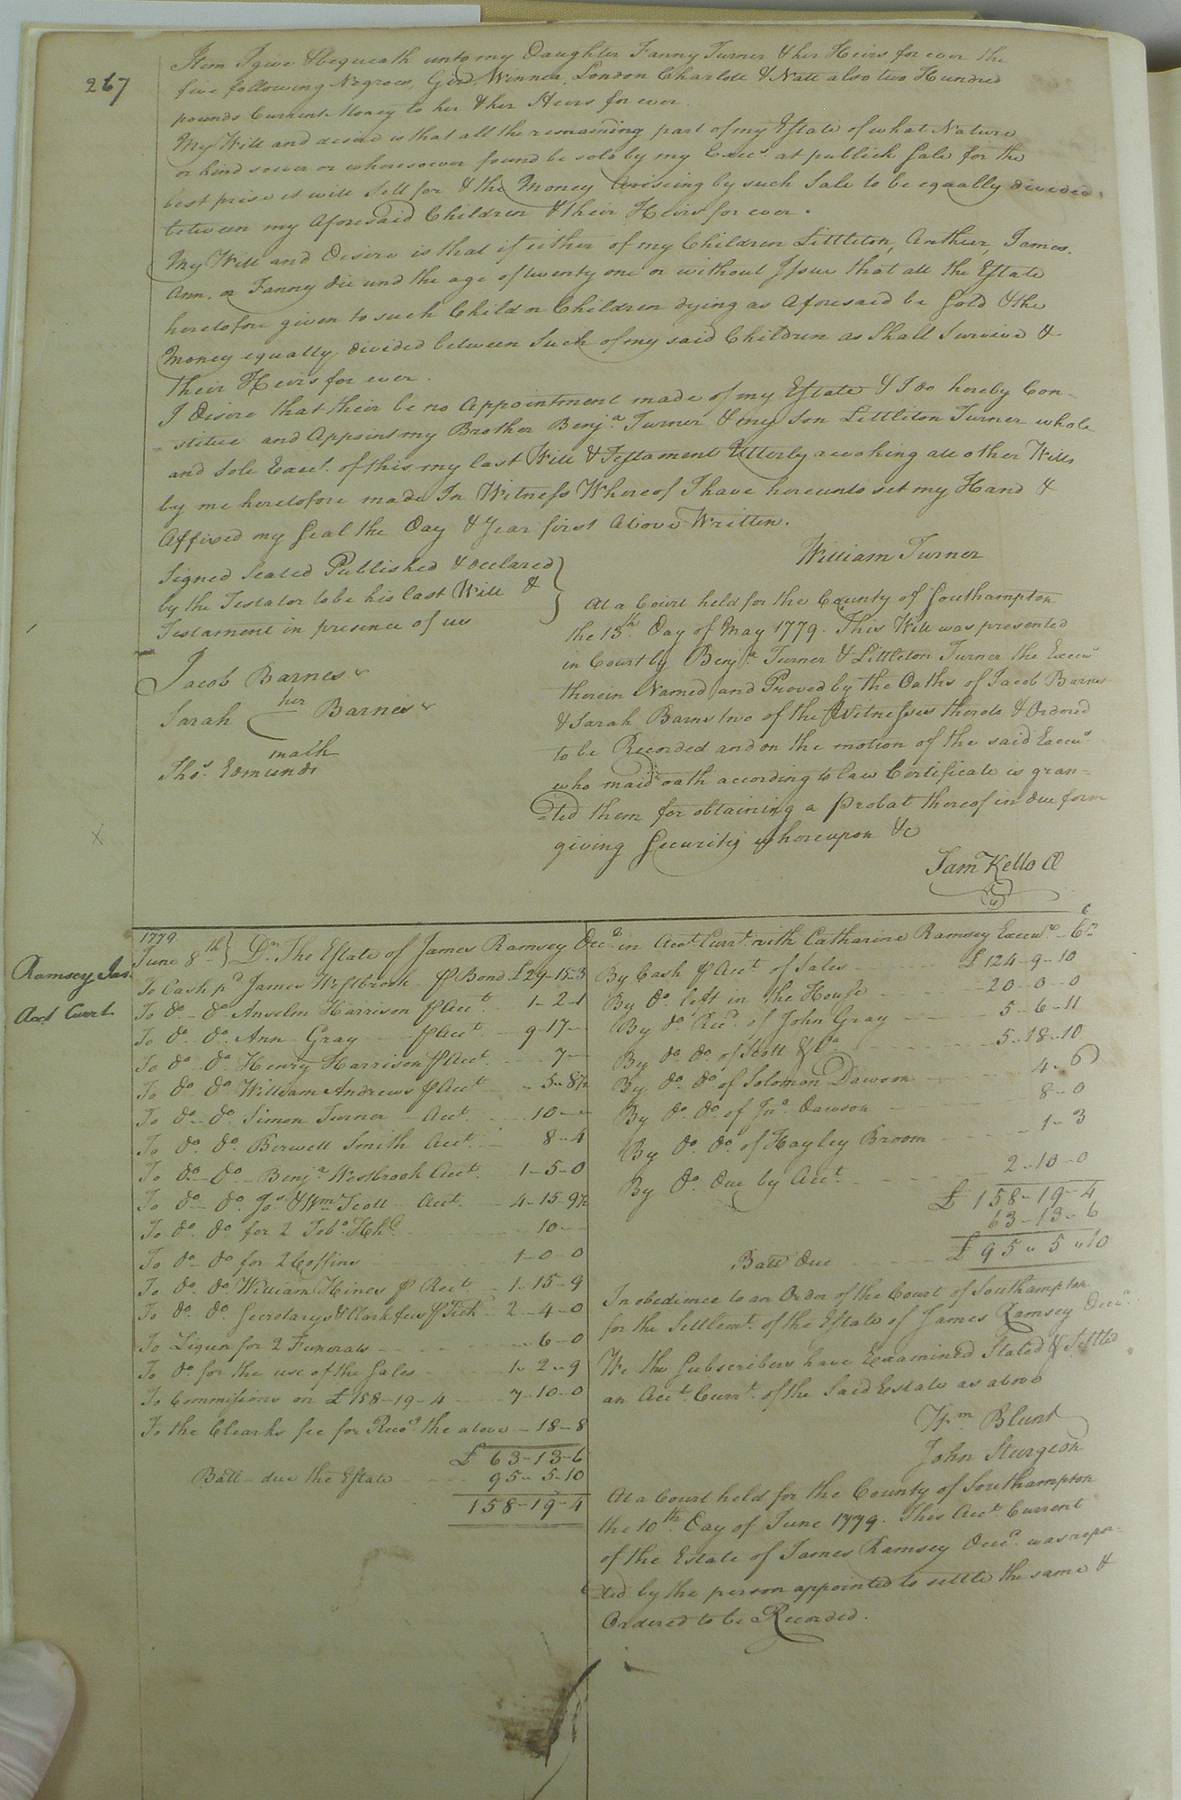 267
Item I give & Bequeath unto my Daughter Fanny Turner & her Heirs for ever the
five following Negroes, Winner, London Charlote & Natt also two Hundred
pounds Current Money to her & her Heirs for ever.
My Will and desire is that all the remaining part of my Estate of what Nature
or kind soever or wheresoever found be sold by my Exec.rs at publick Sale for the
best prise it will sell for & the Money Ariseing by such Sale to be equally divided
between my Aforesaid Children & their Heirs for ever.
My Will and Desire is that if either of my Children Littleton, Arthur, James.
Ann, or Fanny die und the age of twenty one or without Issue that all the Estate
heretofore given to such Child or Children dying as Aforesaid be Sold & the
Money equally divided between Such of my said Children as Shall Survive &
Their Heirs for ever.
I Desire that their be no Appointment made of my Estate & I do hereby Con-
-stitue and Appoint my Brother Benj.a Turner & my Son Littleton Turner whole
and Sole Exec.rs of this my last Will & Testament Utterly revoking all other Wills
by me heretofore made In Witness Whereof I have hereunto set my Hand &
Affixed my Seal the Day & Year first Above Written.
William Turner
Signed Sealed Published & declared
by the Testator to be his last Will &
Testament in presence of us
Jacob Barnes
her
Sarah Barnes
mark
Tho.s Edmunds
At a Court held for the County of Southampton
the 13.th Day of May 1779. This Will was presented
in Court by Benj.a Turner & Littleton Turner the Exec.rs
therein Named and Proved by the Oaths of Jacob Barnes
& Sarah Barns two of the Witnesses thereto & Ordered
to be Recorded and on the motion of the said Exec.rs
who maid oath according to law Certificate is gran-
-ted them for obtaining a Probat thereof in due form
giving Security whereupon &c
Sam.l Kello Cl
Ramsey Jas.
Act Curr.t
1779
June 8.th } D.r The Estate of James Ramsey Dec.d in Acc.t Curr.t with Catharine Ramsey Execu.x C.r
To Cash p.d James Westbrook ℔ Bond £29-15-3
To d.o d.o Anselm Harrison ℔ Acc.t 1-2-1
To d.o d.o Ann Gray ℔ Acc.t 9-17-
To d.o d.o Henry Harrison ℔ Acc.t 7-
To d.o d.o William Andrews ℔ Acc.t 5-8½
To d.o d.o Simon Turner Acc.t 10--
To d.o d.o Burwell Smith Acc.t 8-4
To d.o d.o Benj.a Westbrook Acc.t 1-5-0
To d.o d.o Jo.s & W.m Scott Acc.t 4-15-9½
To d.o d.o for 2 Tob.o Hh.ds 10--
To d.o d.o for 2 Coffins 1-0-0
To d.o d.o William Hines ℔ Acc.t 1-15-9
To d.o d.o Secretarys & Clark fees ℔ Tick 2-4-0
To Liquor for 2 Funerals 6-0
To d.o for the use of the Sales 1-2-9
To Commissions on £158-19-4 7-10-0
To the Clearks fee for Reco.g the above 18-8
£63-13-6
Ball due the Estate 95-5-10
158-19-4
By Cash ℔ Acc.t of Sales £124-9-10
By d.o left in the House 20-0-0
By d.o Rec.d of John Gray 5-6-11
By d.o d.o of Scott & C.o 5-18-10
By d.o d.o of Solomon Dawson 4-6
By d.o d.o of Jn.o Dawson 8-0
By d.o d.o of Hayley Broom 1-3
By d.o Due by Acc.t 2-10-0
£158-19-4
63-13-6
Ball Due £95"5"10
In obedience to an Order of the Court of Southampton
for the Settlem.t of the Estate of James Ramsey Dec.d
We the Subscribers have Examined Stated & Settled
an Acc.t Curr.t of the Said Estate as above
W.m Blunt
John Sturgeon
At a Court held for the County of Southampton
the 10.th Day of June 1779. This Acc.t Current
of the Estate of James Ramsey Dec.d was repor-
-ted by the person appointed to settle the same &
Ordered to be Recorded.